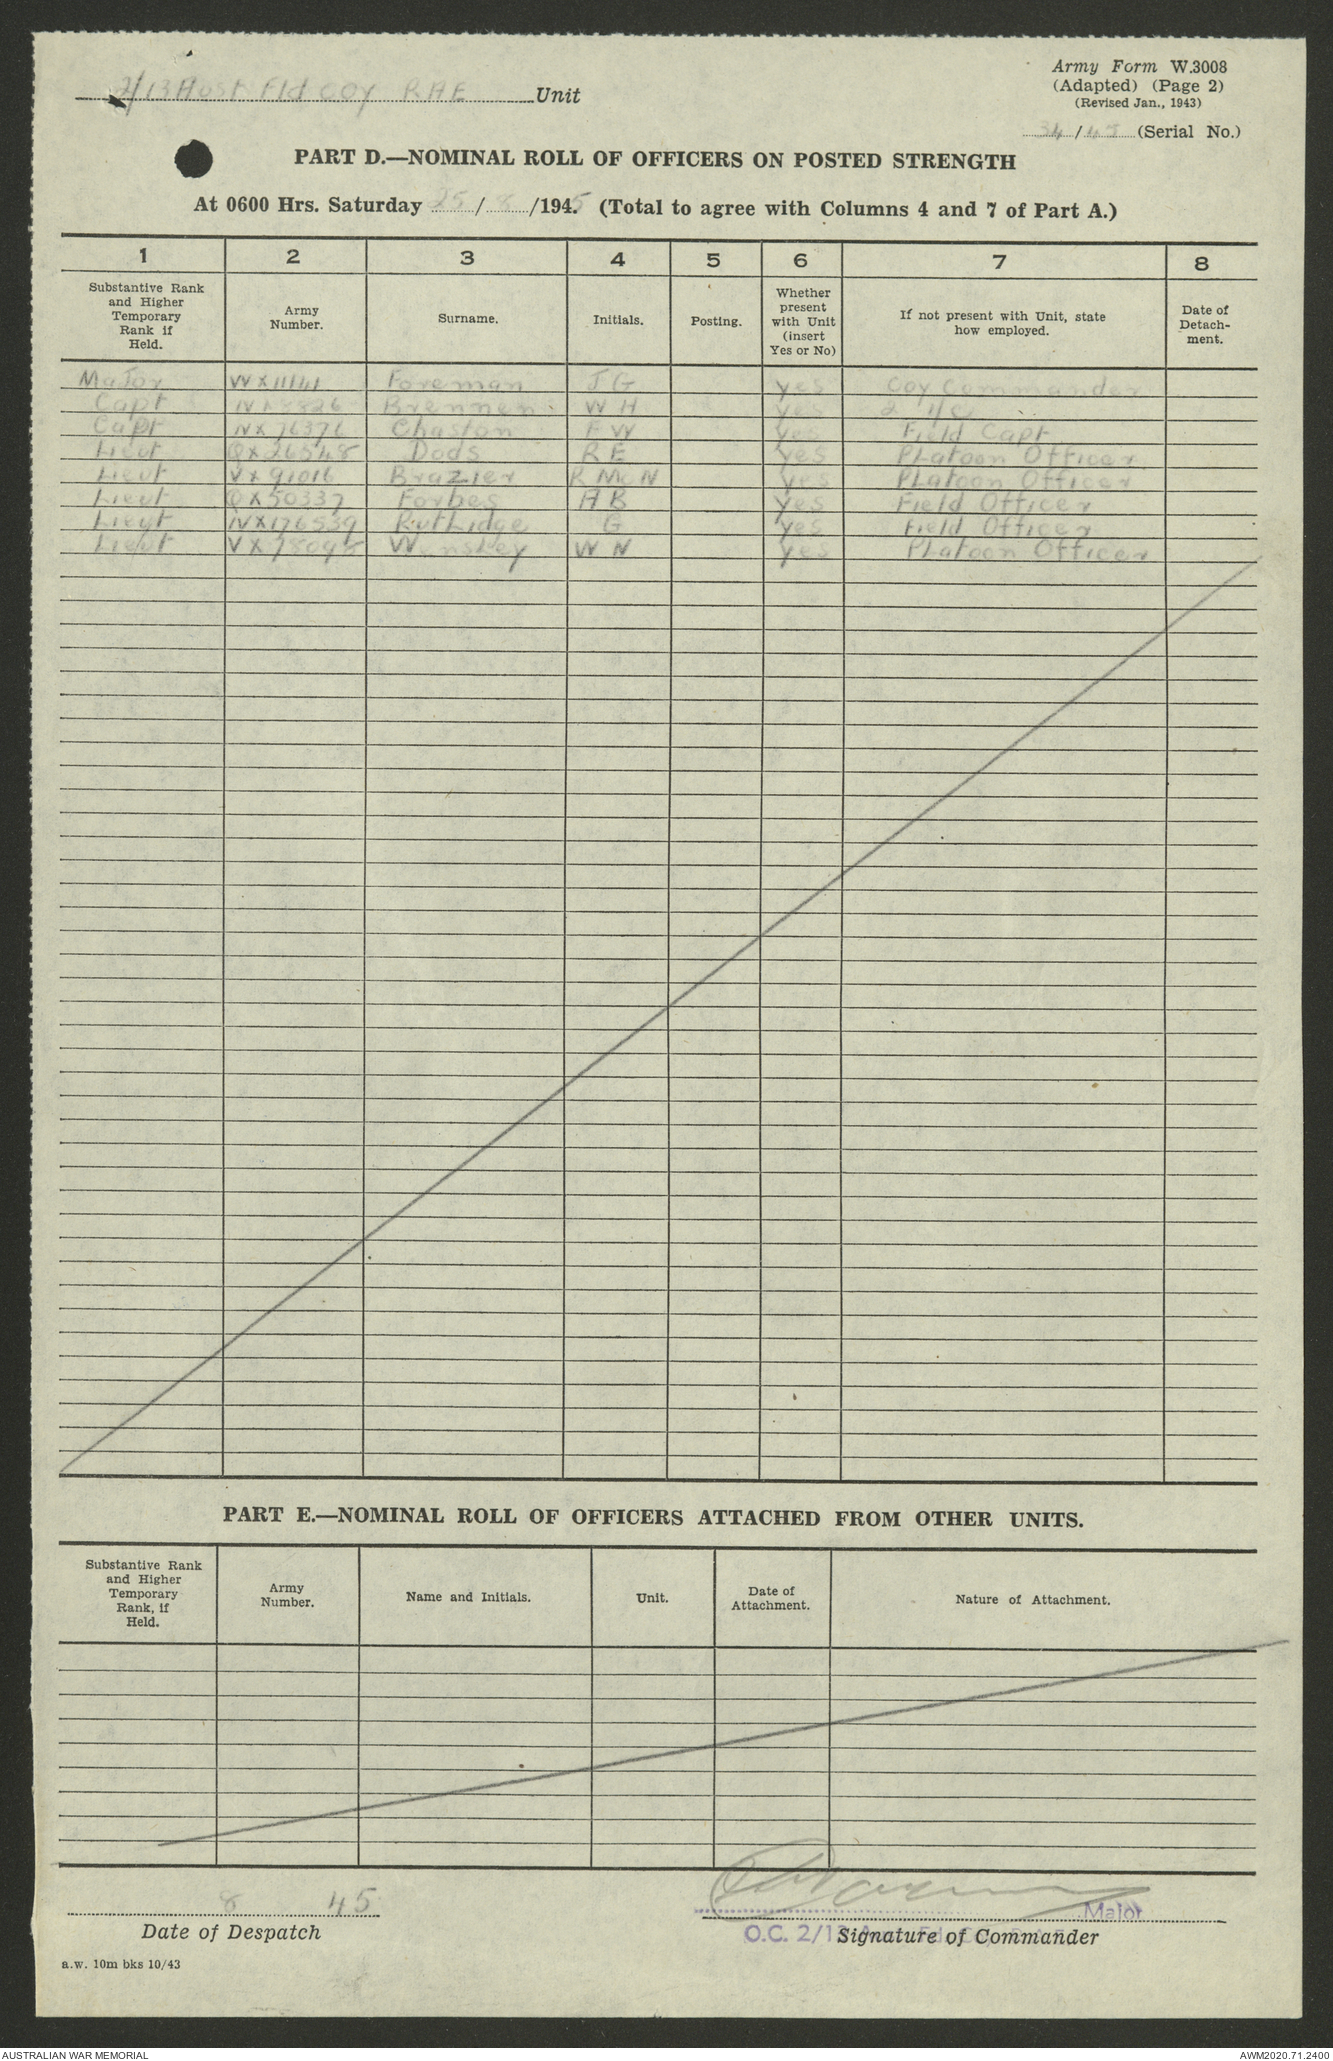 2/13 Aust Fld Coy RAE Unit
Army Form W.3008
(Adapted) (Page 2)
(Revised Jan., 1943)
34/45 (Serial No.)
PART D.—NOMINAL ROLL OF OFFICERS ON POSTED STRENGTH
At 0600 Hrs. Saturday 25/8/1945 (Total to agree with Columns 4 and 7 of Part A.)
1 2 3 4 5 6 7 8
Substantive Rank and Higher Temporary Rank if Held. Army Number. Surname. Initials. Posting. Whether present with Unit (insert Yes or No) If not present with Unit, state how employed. Date of Detach-ment.
Major Foreman JG yes Coy Commander
Capt Brennen WH yes 2 I/C
Capt NX76376 Chaston FW yes Field Capt
Lieut QX26548 Dods RE yes Platoon Officer
Lieut VX91016 Brazier R McN yes Platoon Officer
Lieut QX50337 Forbes AB yes Field Officer
Lieut NX176539 Rutlidge G yes Field Officer
Lieut VX78098 WN yes Platoon Officer
PART E.—NOMINAL ROLL OF OFFICERS ATTACHED FROM OTHER UNITS.
Substantive Rank and Higher Temporary Rank, if Held. Army Number. Name and Initials. Unit. Date of Attachment. Nature of Attachment.
8 45
Major
Date of Despatch
O.C. 2/13
Signature of Commander
a.w. 10m bks 10/43
AUSTRALIAN WAR MEMORIAL
AWM2020.71.2400